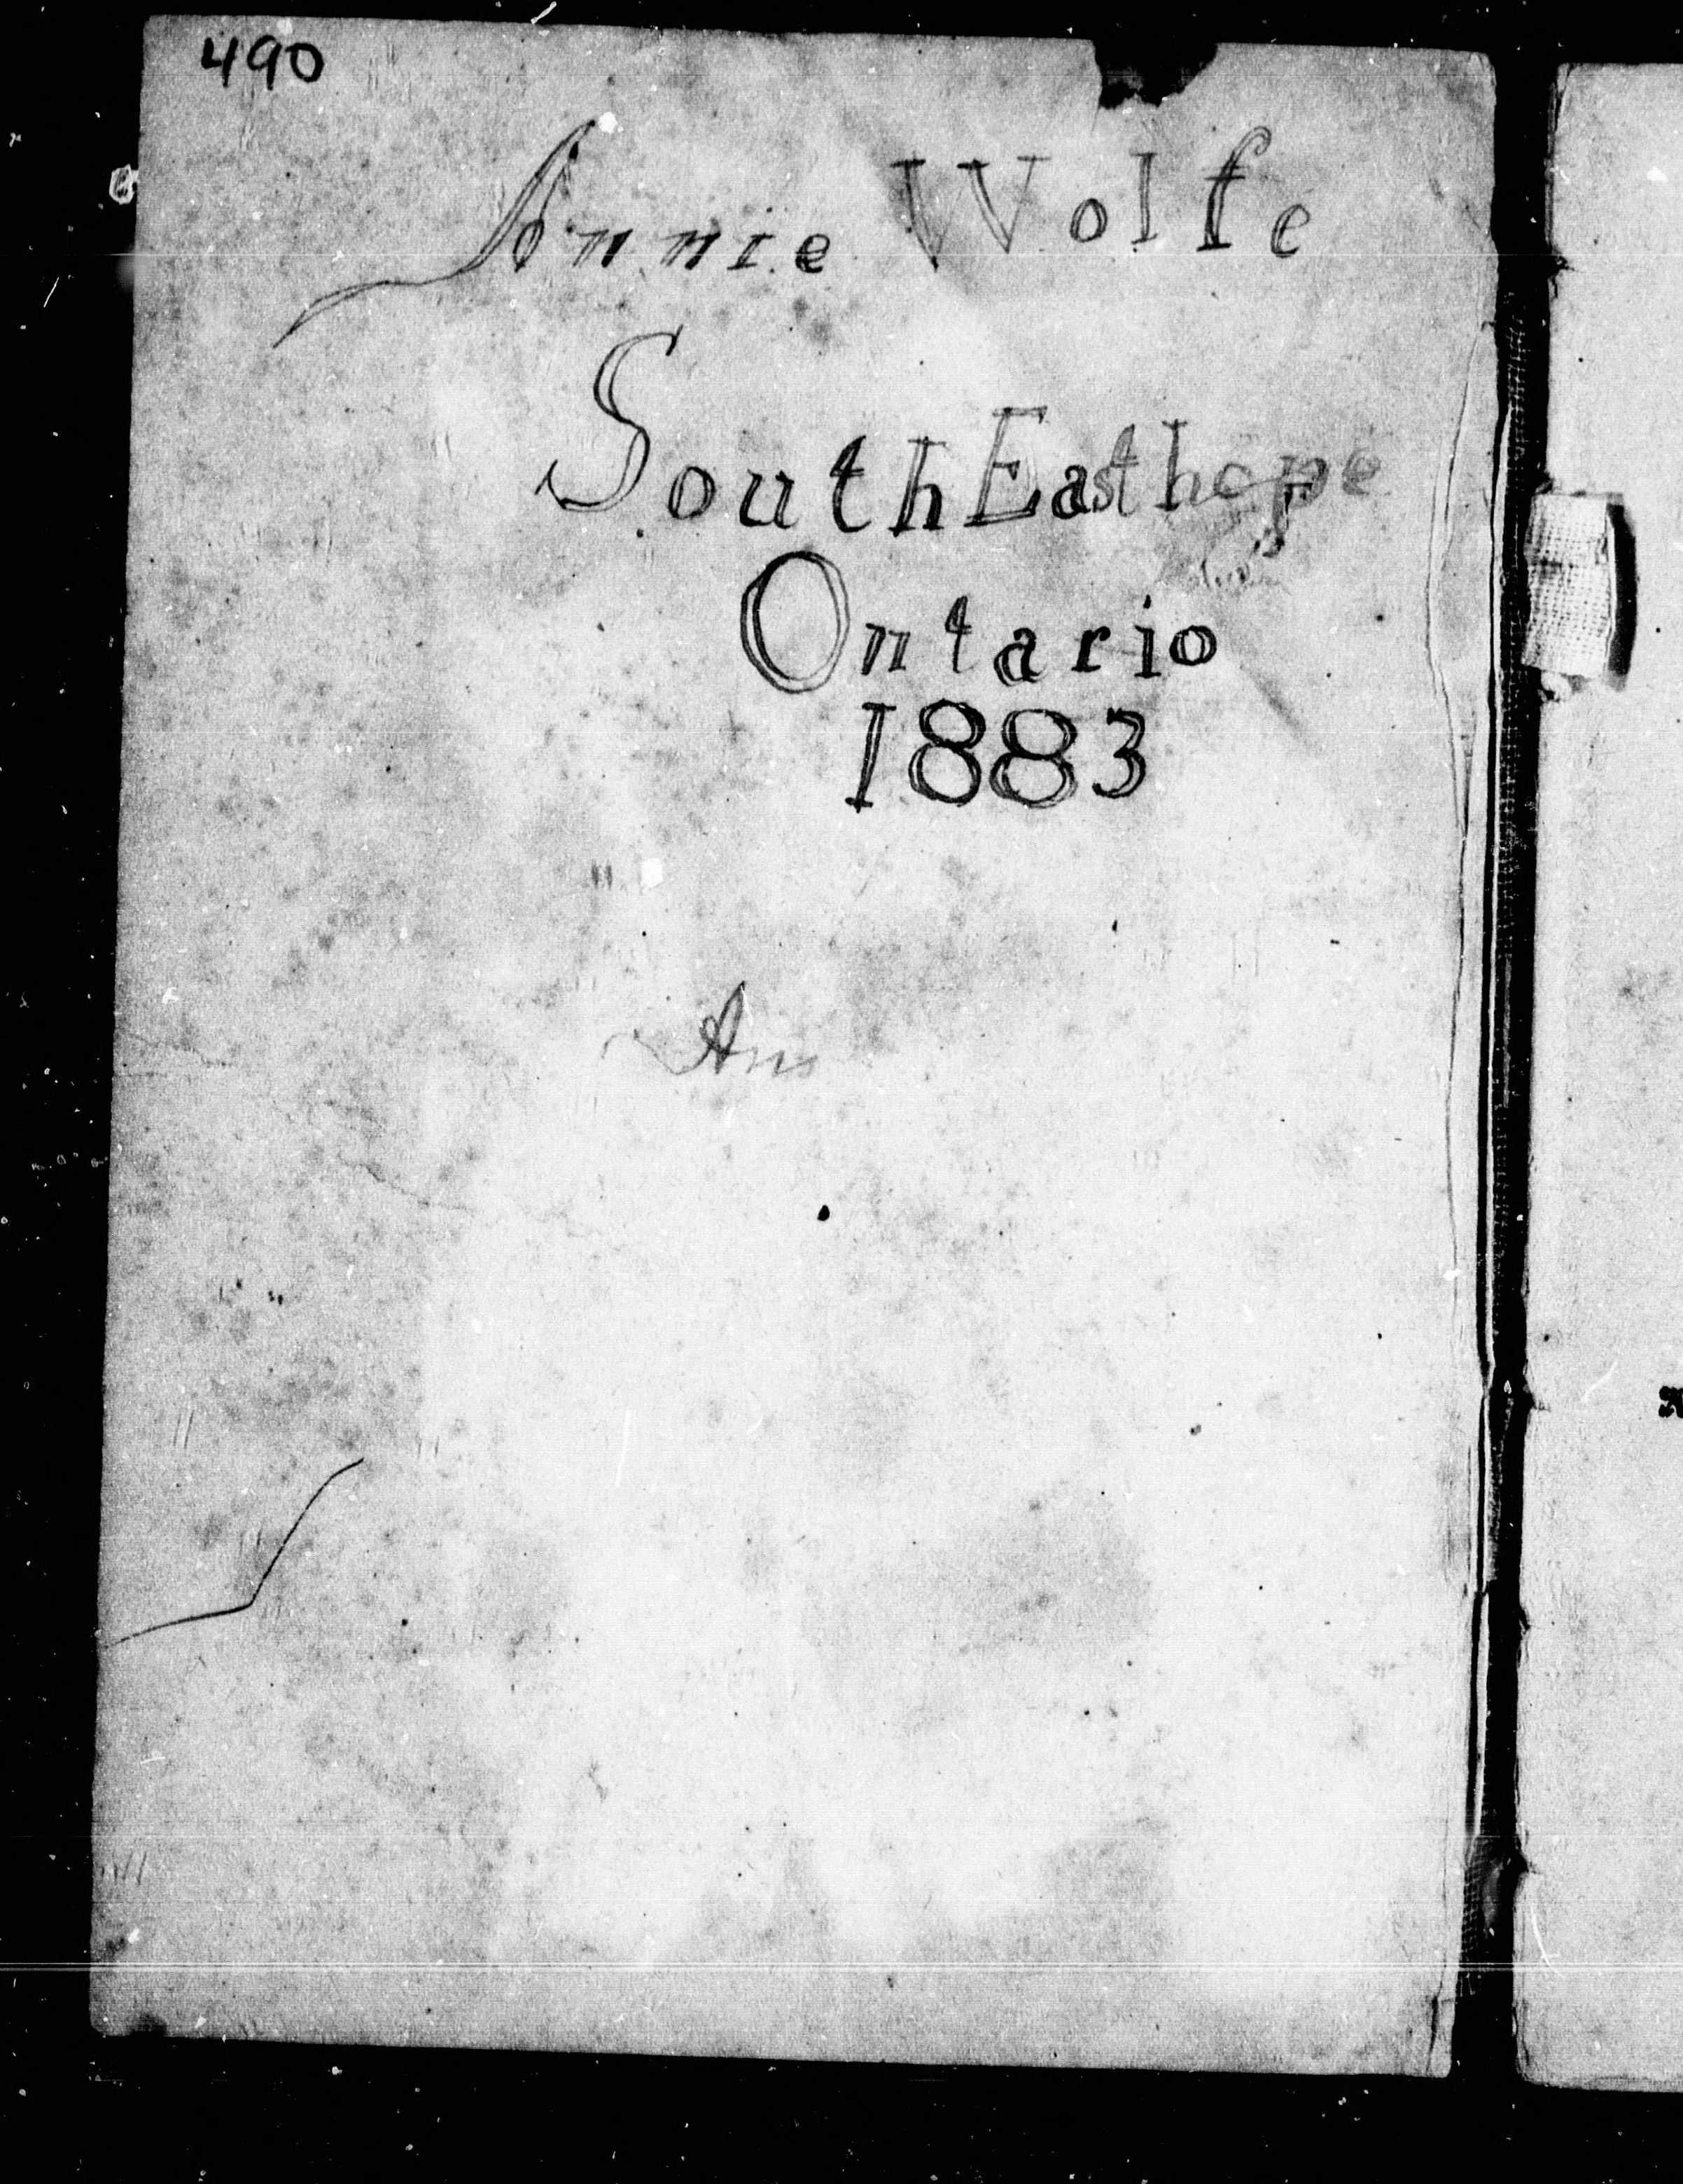 490
Annie Wolfe
South Easthope
Ontario
1883
An